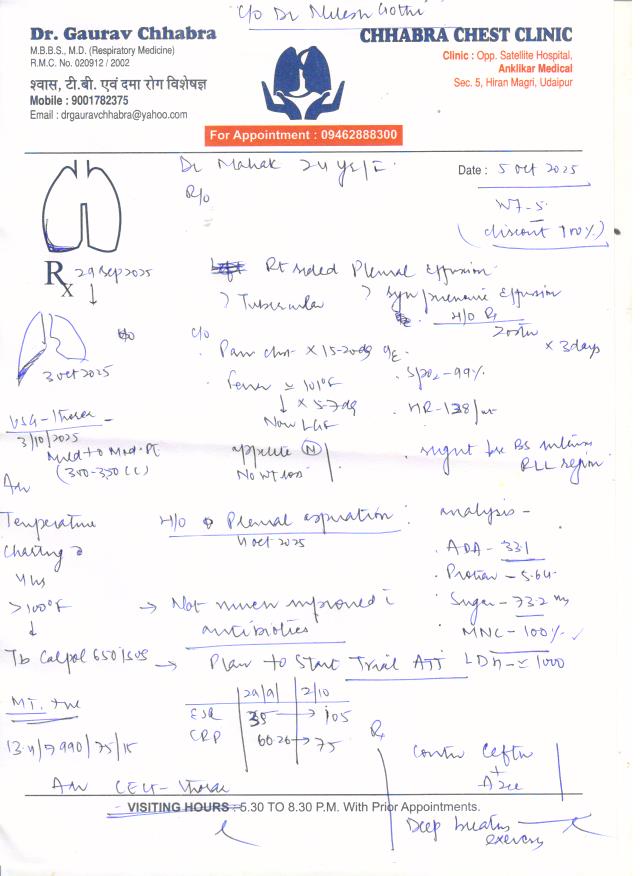 C/o Dr Nilesh
Dr. Gaurav Chhabra
M.B.B.S., M.D. (Respiratory Medicine)
R.M.C. No. 020912 / 2002
श्वास, टी.बी. एवं दमा रोग विशेषज्ञ
Mobile : 9001782375
Email : drgauravchhabra@yahoo.com
CHHABRA CHEST CLINIC
Clinic : Opp. Satellite Hospital,
Anklikar Medical
Sec. 5, Hiran Magri, Udaipur
For Appointment : 09462888300
Dr Mahak 24 yrs/F
Date : 5 Oct 2025
R/o
WT-5
(discount 100%)
Rx 29 Sep 2025
Rt sided Pleural Effusion
? Tubercular ? synpneumonic Effusion
H/O
3 Oct 2025
c/o
Pain chest x 15-20 dys
x 3 days
Fever ≃ 101°F
SpO2 - 99%
↓ x 5-7 dy
HR - 138/mt
Now LGF
USG - Thorax
3/10/2025
Mild to Mod. Pl
(300-350 cc)
appetite (N)
No wt loss
RLL region
Adv
Temperature
Charting
4 hrs
>100°F
↓
Tb Calpol 650 / SOS
H/O Pleural aspiration :
4 Oct 2025
analysis -
ADA - 331
Protein - 5.64
Sugar - 73.2 mg
MNC - 100% ✓
LDH - ≃ 1000
→ Not much improved
antibiotics
→ Plan to Start Trial ATT
MT. +ve
13.4/7990/75/15
29/9 2/10
ESR 35 → 105
CRP 60.26 → 75
Rx
+
Adv CECT - Thorax
VISITING HOURS : 5.30 TO 8.30 P.M. With Prior Appointments.
Deep breathing
exercises